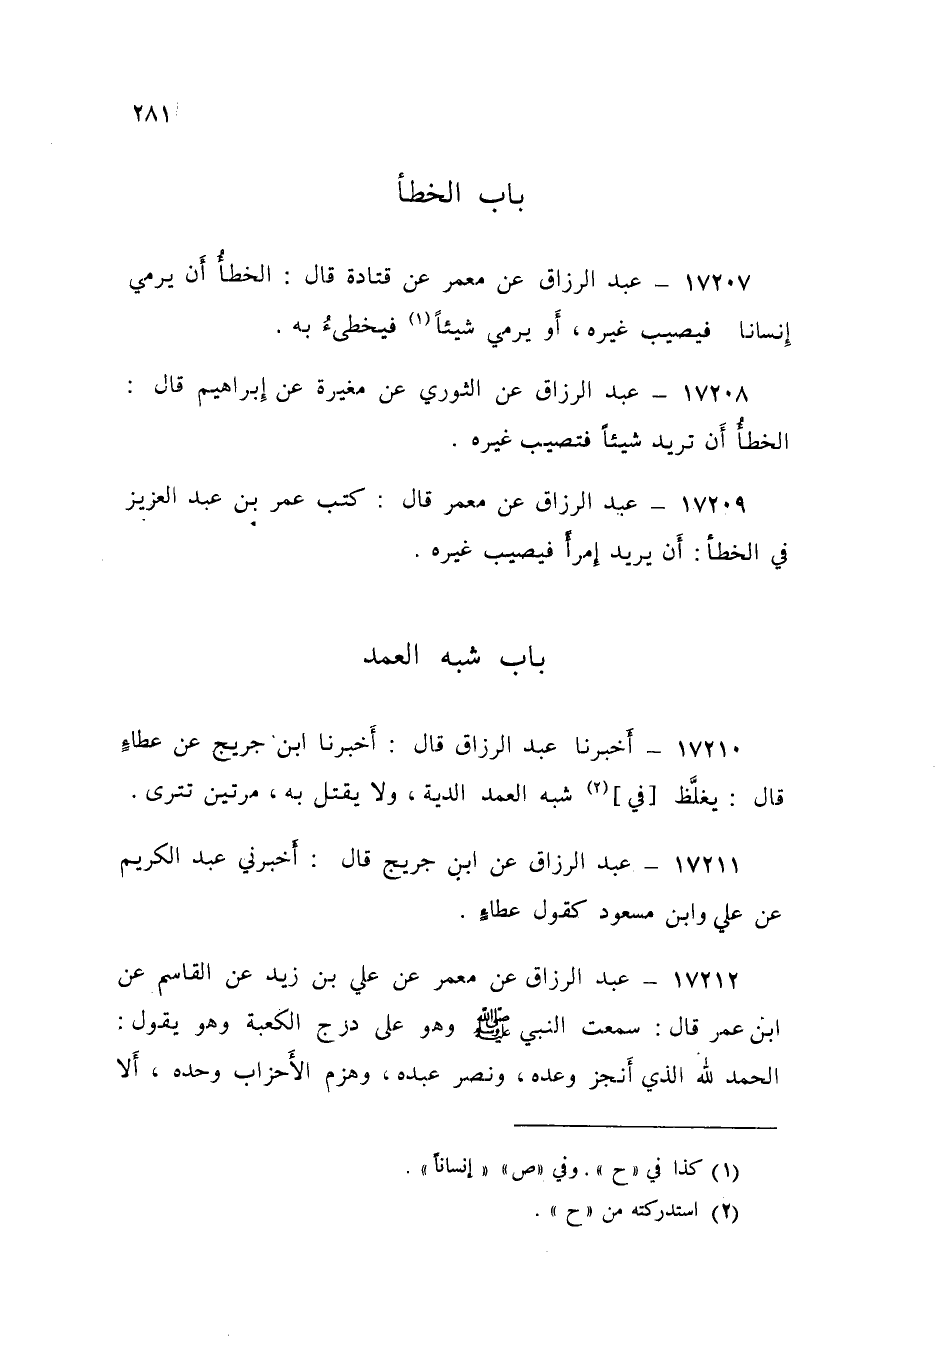 ٢٨١
باب الخطأ
١٧٢٠٧ – عبد الرزاق عن معمر عن قتادة قال : الخطأُ أَن يرمي
إِنسانا فيصيب غيره ، أَو يرمي شيئاً(١) فيخطىءُ به .
١٧٢٠٨ – عبد الرزاق عن الثوري عن مغيرة عن إِبراهيم قال :
الخطأُ أَن تريد شيئاً فتصيب غيره .
١٧٢٠٩ – عبد الرزاق عن معمر قال : كتب عمر بن عبد العزيز
في الخطأ : أَن يريد إِمرأً فيصيب غيره .
باب شبه العمد
١٧٢١٠ – أَخبرنا عبد الرزاق قال : أَخبرنا ابن جريج عن عطاءٍ
قال : يغلَّظ [في](٢) شبه العمد الدية ، ولا يقتل به ، مرتين تترى .
١٧٢١١ – عبد الرزاق عن ابن جريج قال : أَخبرني عبد الكريم
عن علي وابن مسعود كقول عطاءٍ .
١٧٢١٢ – عبد الرزاق عن معمر عن علي بن زيد عن القاسم عن
ابن عمر قال : سمعت النبي ﷺ وهو على درج الكعبة وهو يقول :
الحمد لله الذي أَنجز وعده ، ونصر عبده ، وهزم الأَحزاب وحده ، أَلا
(١) كذا في «ح» . وفي «ص» « إنساناً » .
(٢) استدركته من «ح» .